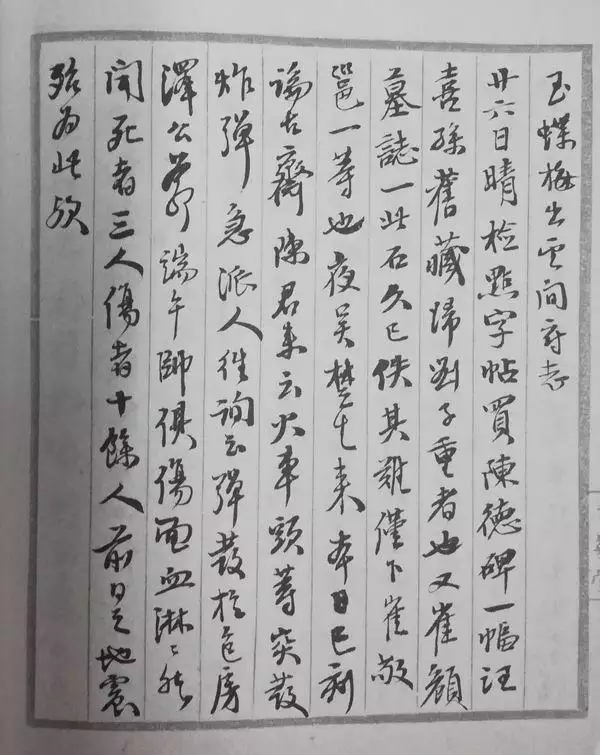 玉蝶梅出云间府志
廿六日晴检點字帖買陳德碑一幅汪
喜孫舊藏歸劉子重者也又崔顏
墓誌一此石久已佚其難僅下崔敬
邕一等也夜吴楚来本日巳刻
論古齋陳君来云火車頭等突發
炸彈急派人往詢云彈發於包房
澤公端午帥俱傷面血淋〻然
聞死者三人傷者十餘人前日之地震
殆為此歟